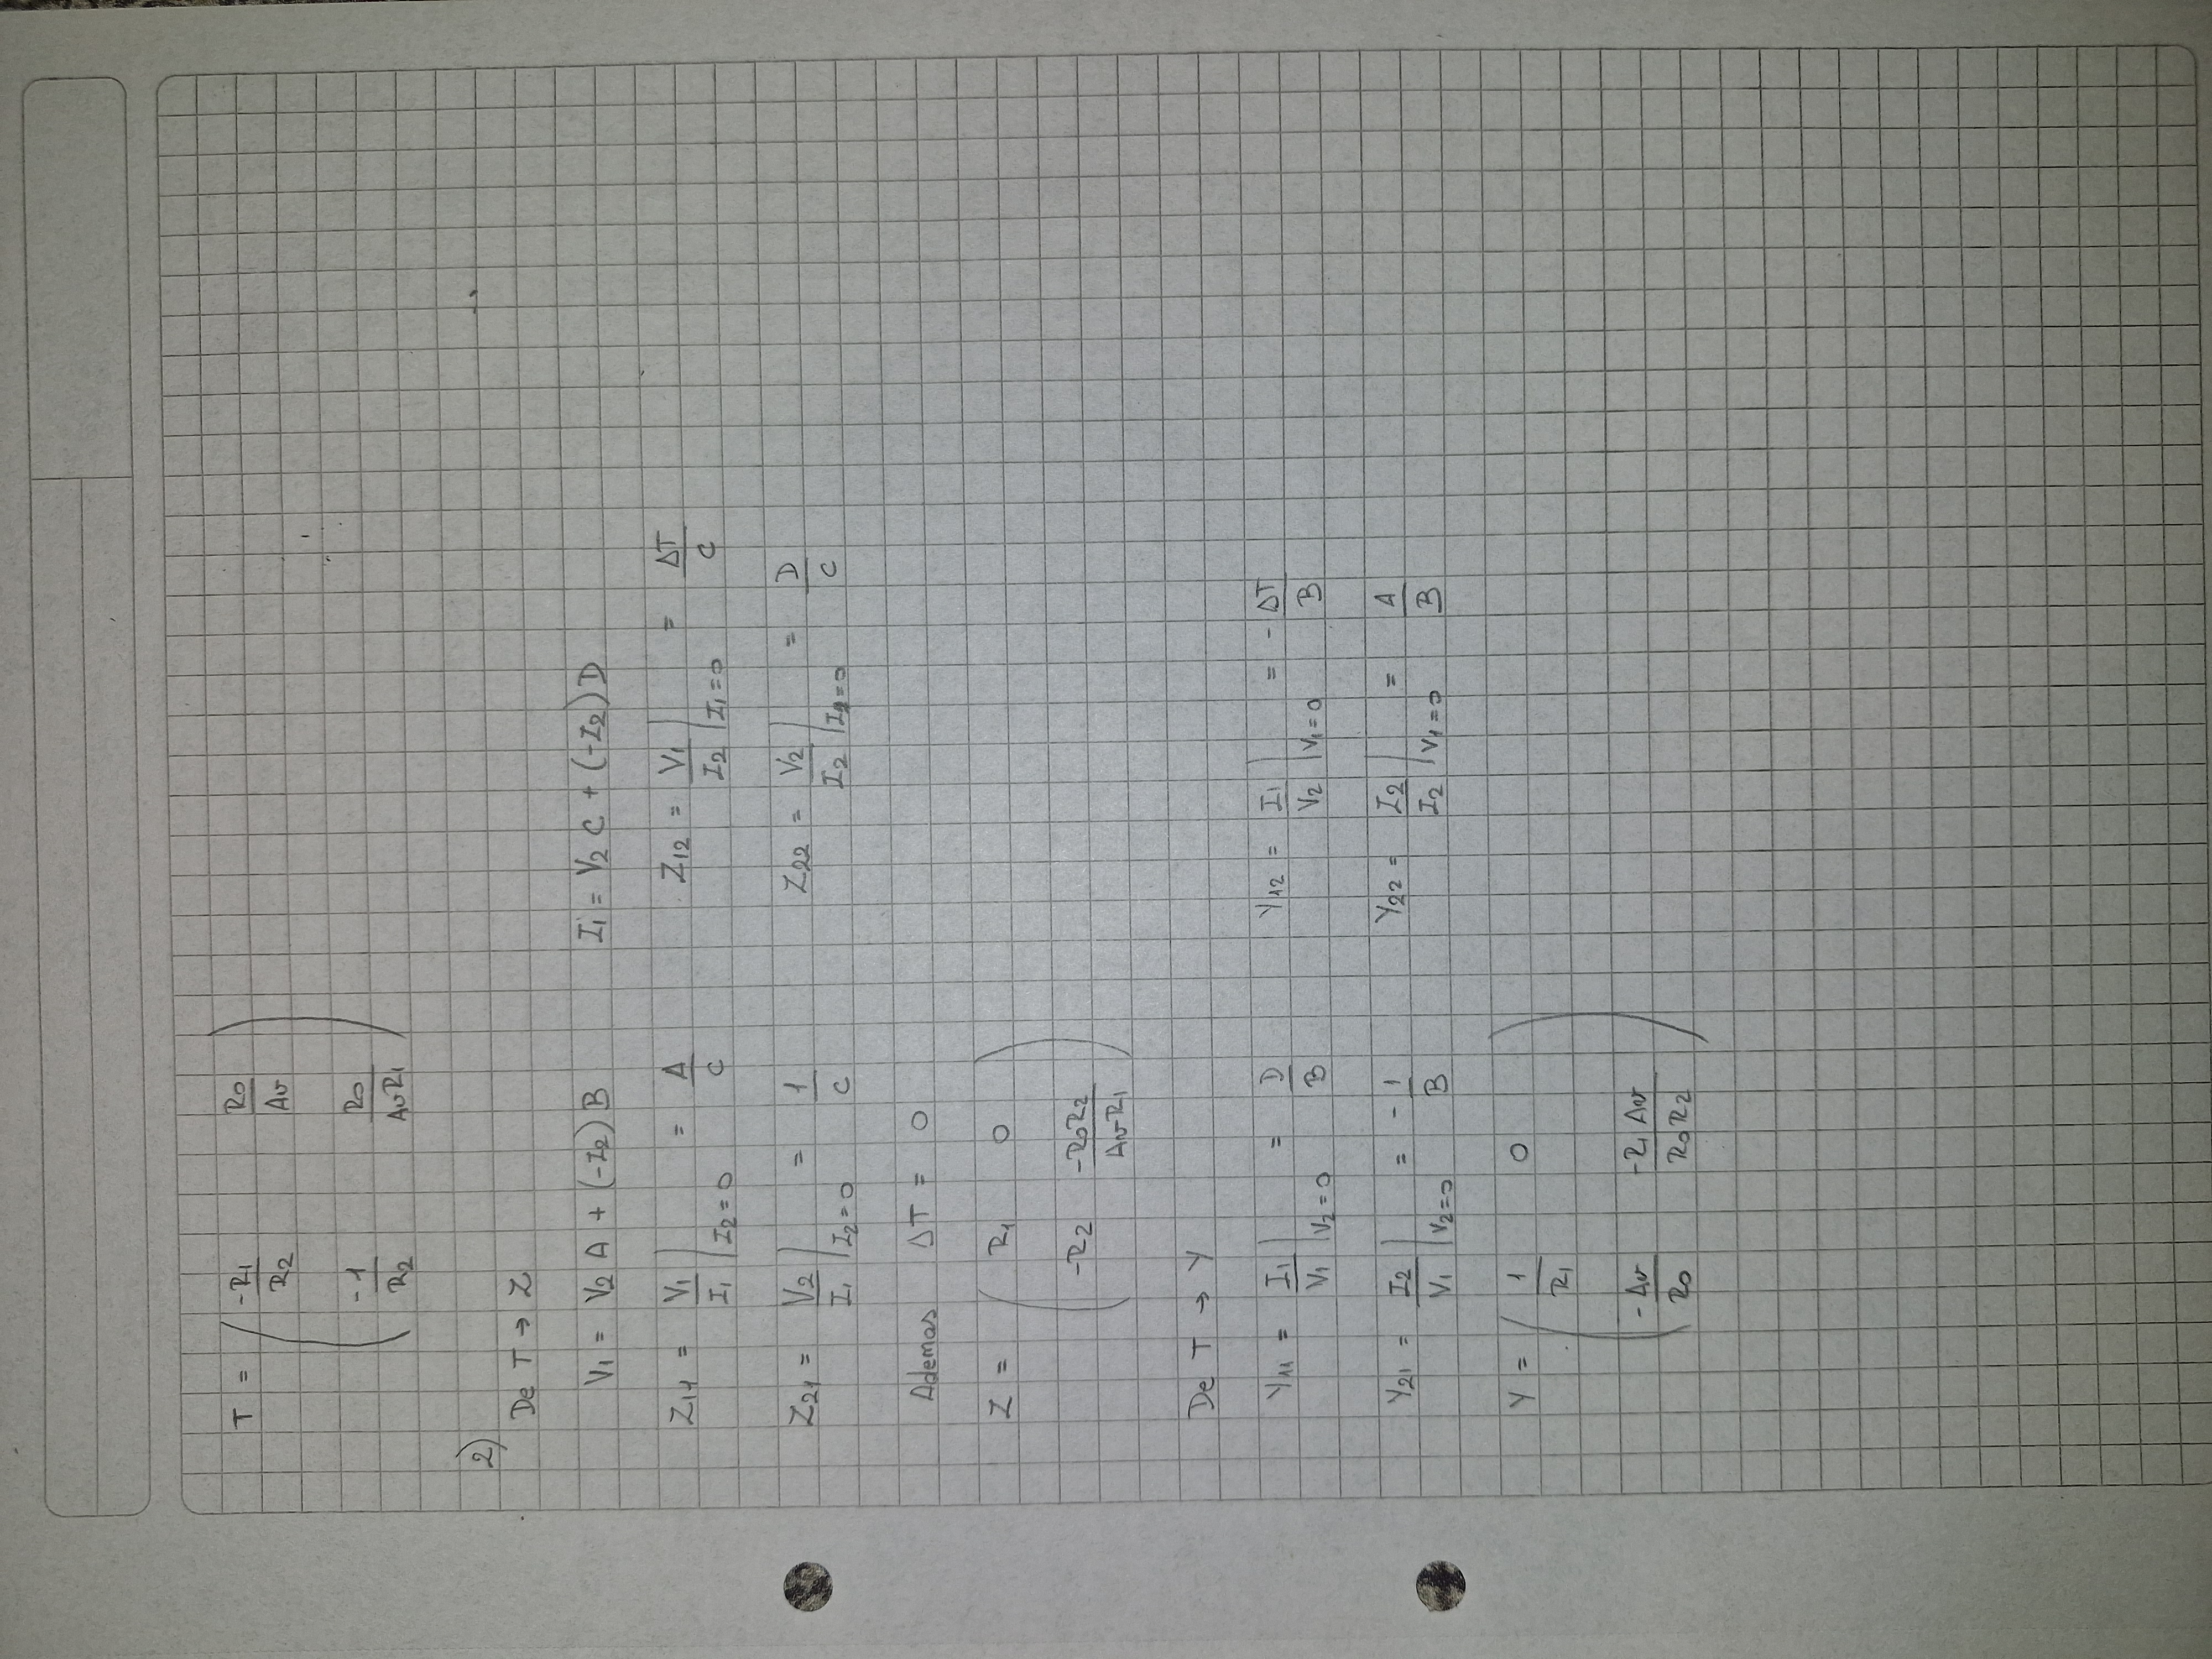 T = ( -R1/R2   Ro/Av
-1/R2   Ro/AvR1 )
2)
De T → Z
V1 = V2 A + (-I2) B   I1 = V2 C + (-I2) D
Z11 = V1/I1 | I2=0 = A/C   Z12 = V1/I2 | I1=0 = ΔT/C
Z21 = V2/I1 | I2=0 = 1/C   Z22 = V2/I2 | I1=0 = D/C
Ademas ΔT = 0
Z = ( R1   0
-R2   -RoR2/AvR1 )
De T → Y
Y11 = I1/V1 | V2=0 = D/B   Y12 = I1/V2 | V1=0 = - ΔT/B
Y21 = I2/V1 | V2=0 = - 1/B   Y22 = I2/I2 | V1=0 = A/B
Y = ( 1/R1   0
-Av/Ro   -R1 Av/Ro R2 )